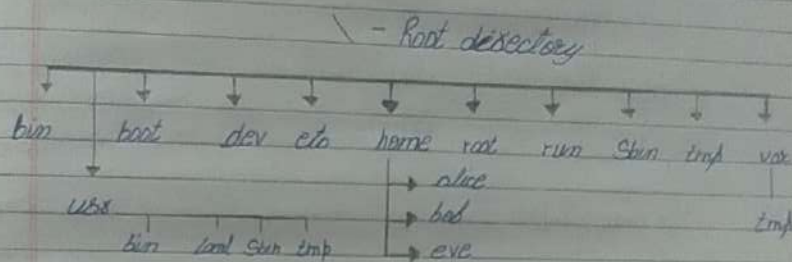 \ - Root directory
bin boot dev etc home root run sbin tmp var
alice
usr bob tmp
bin local sbin tmp eve